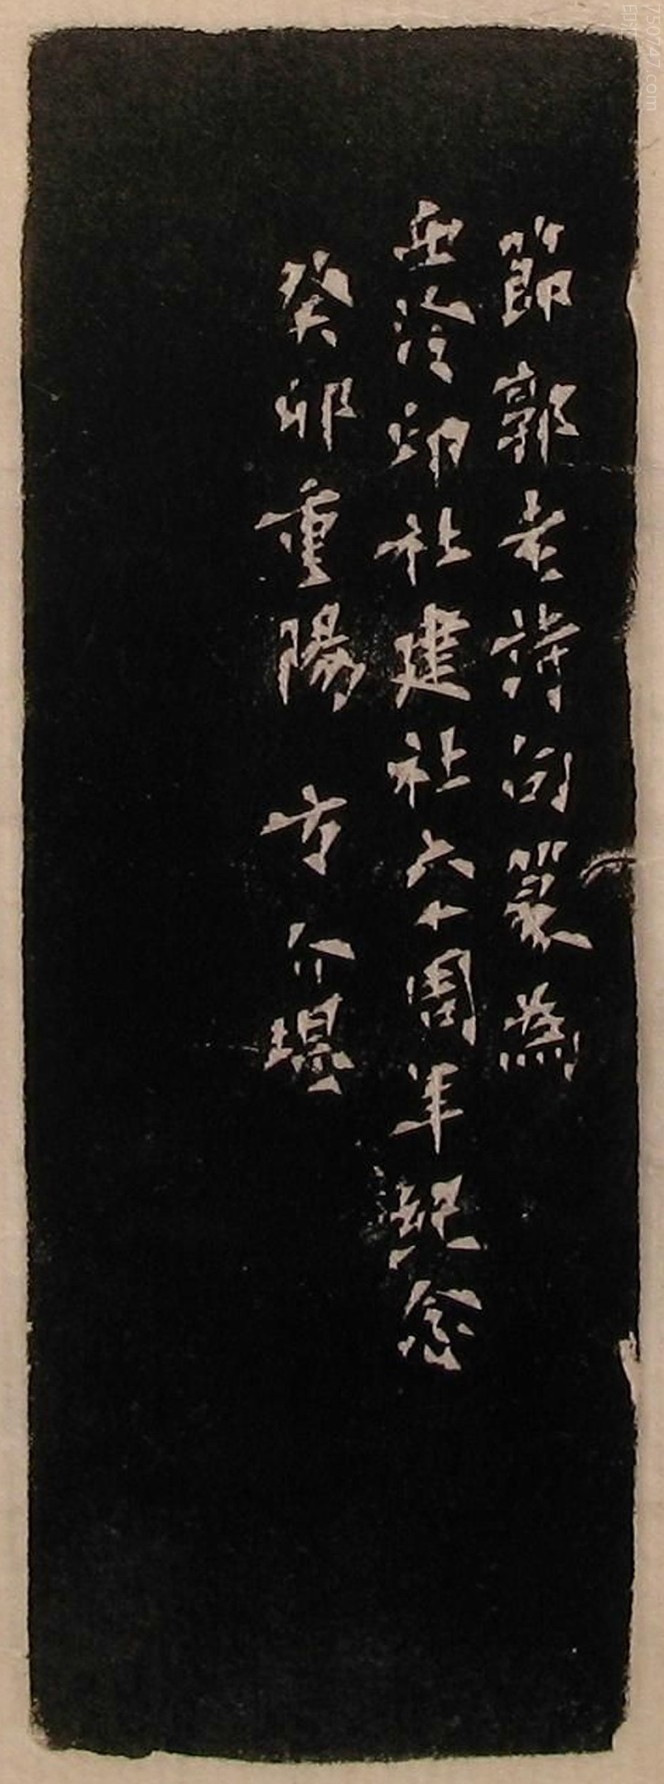 節郭老詩句篆為
西泠印社建社六十周年紀念
癸卯重陽 方介堪